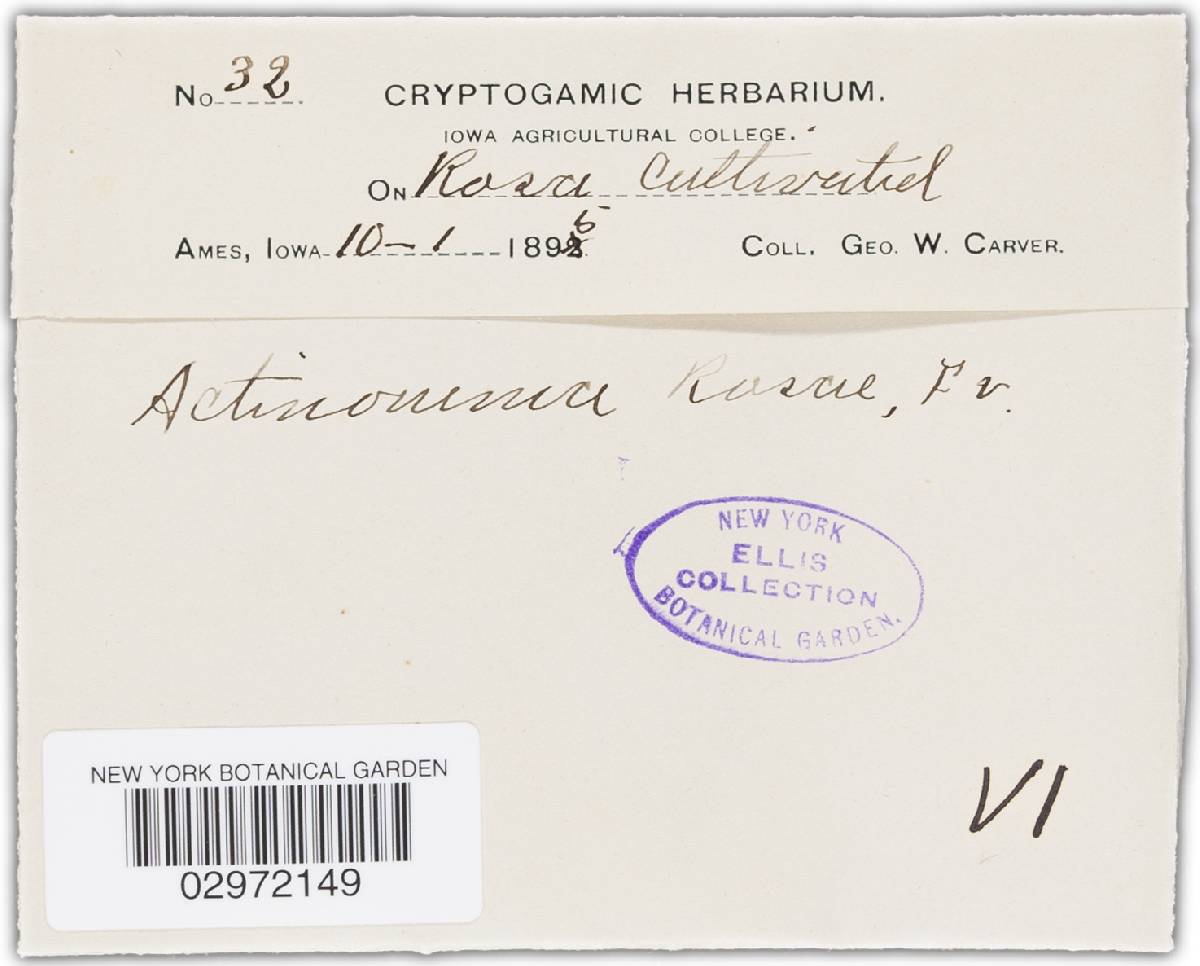 No 32 CRYPTOGAMIC HERBARIUM.
IOWA AGRICULTURAL COLLEGE.
ON Rosa Cultivated
AMES, IOWA 10-1 1895 COLL. GEO. W. CARVER.
Actinonema Rosae, Fr.
NEW YORK
ELLIS
COLLECTION
BOTANICAL GARDEN.
VI
NEW YORK BOTANICAL GARDEN
02972149